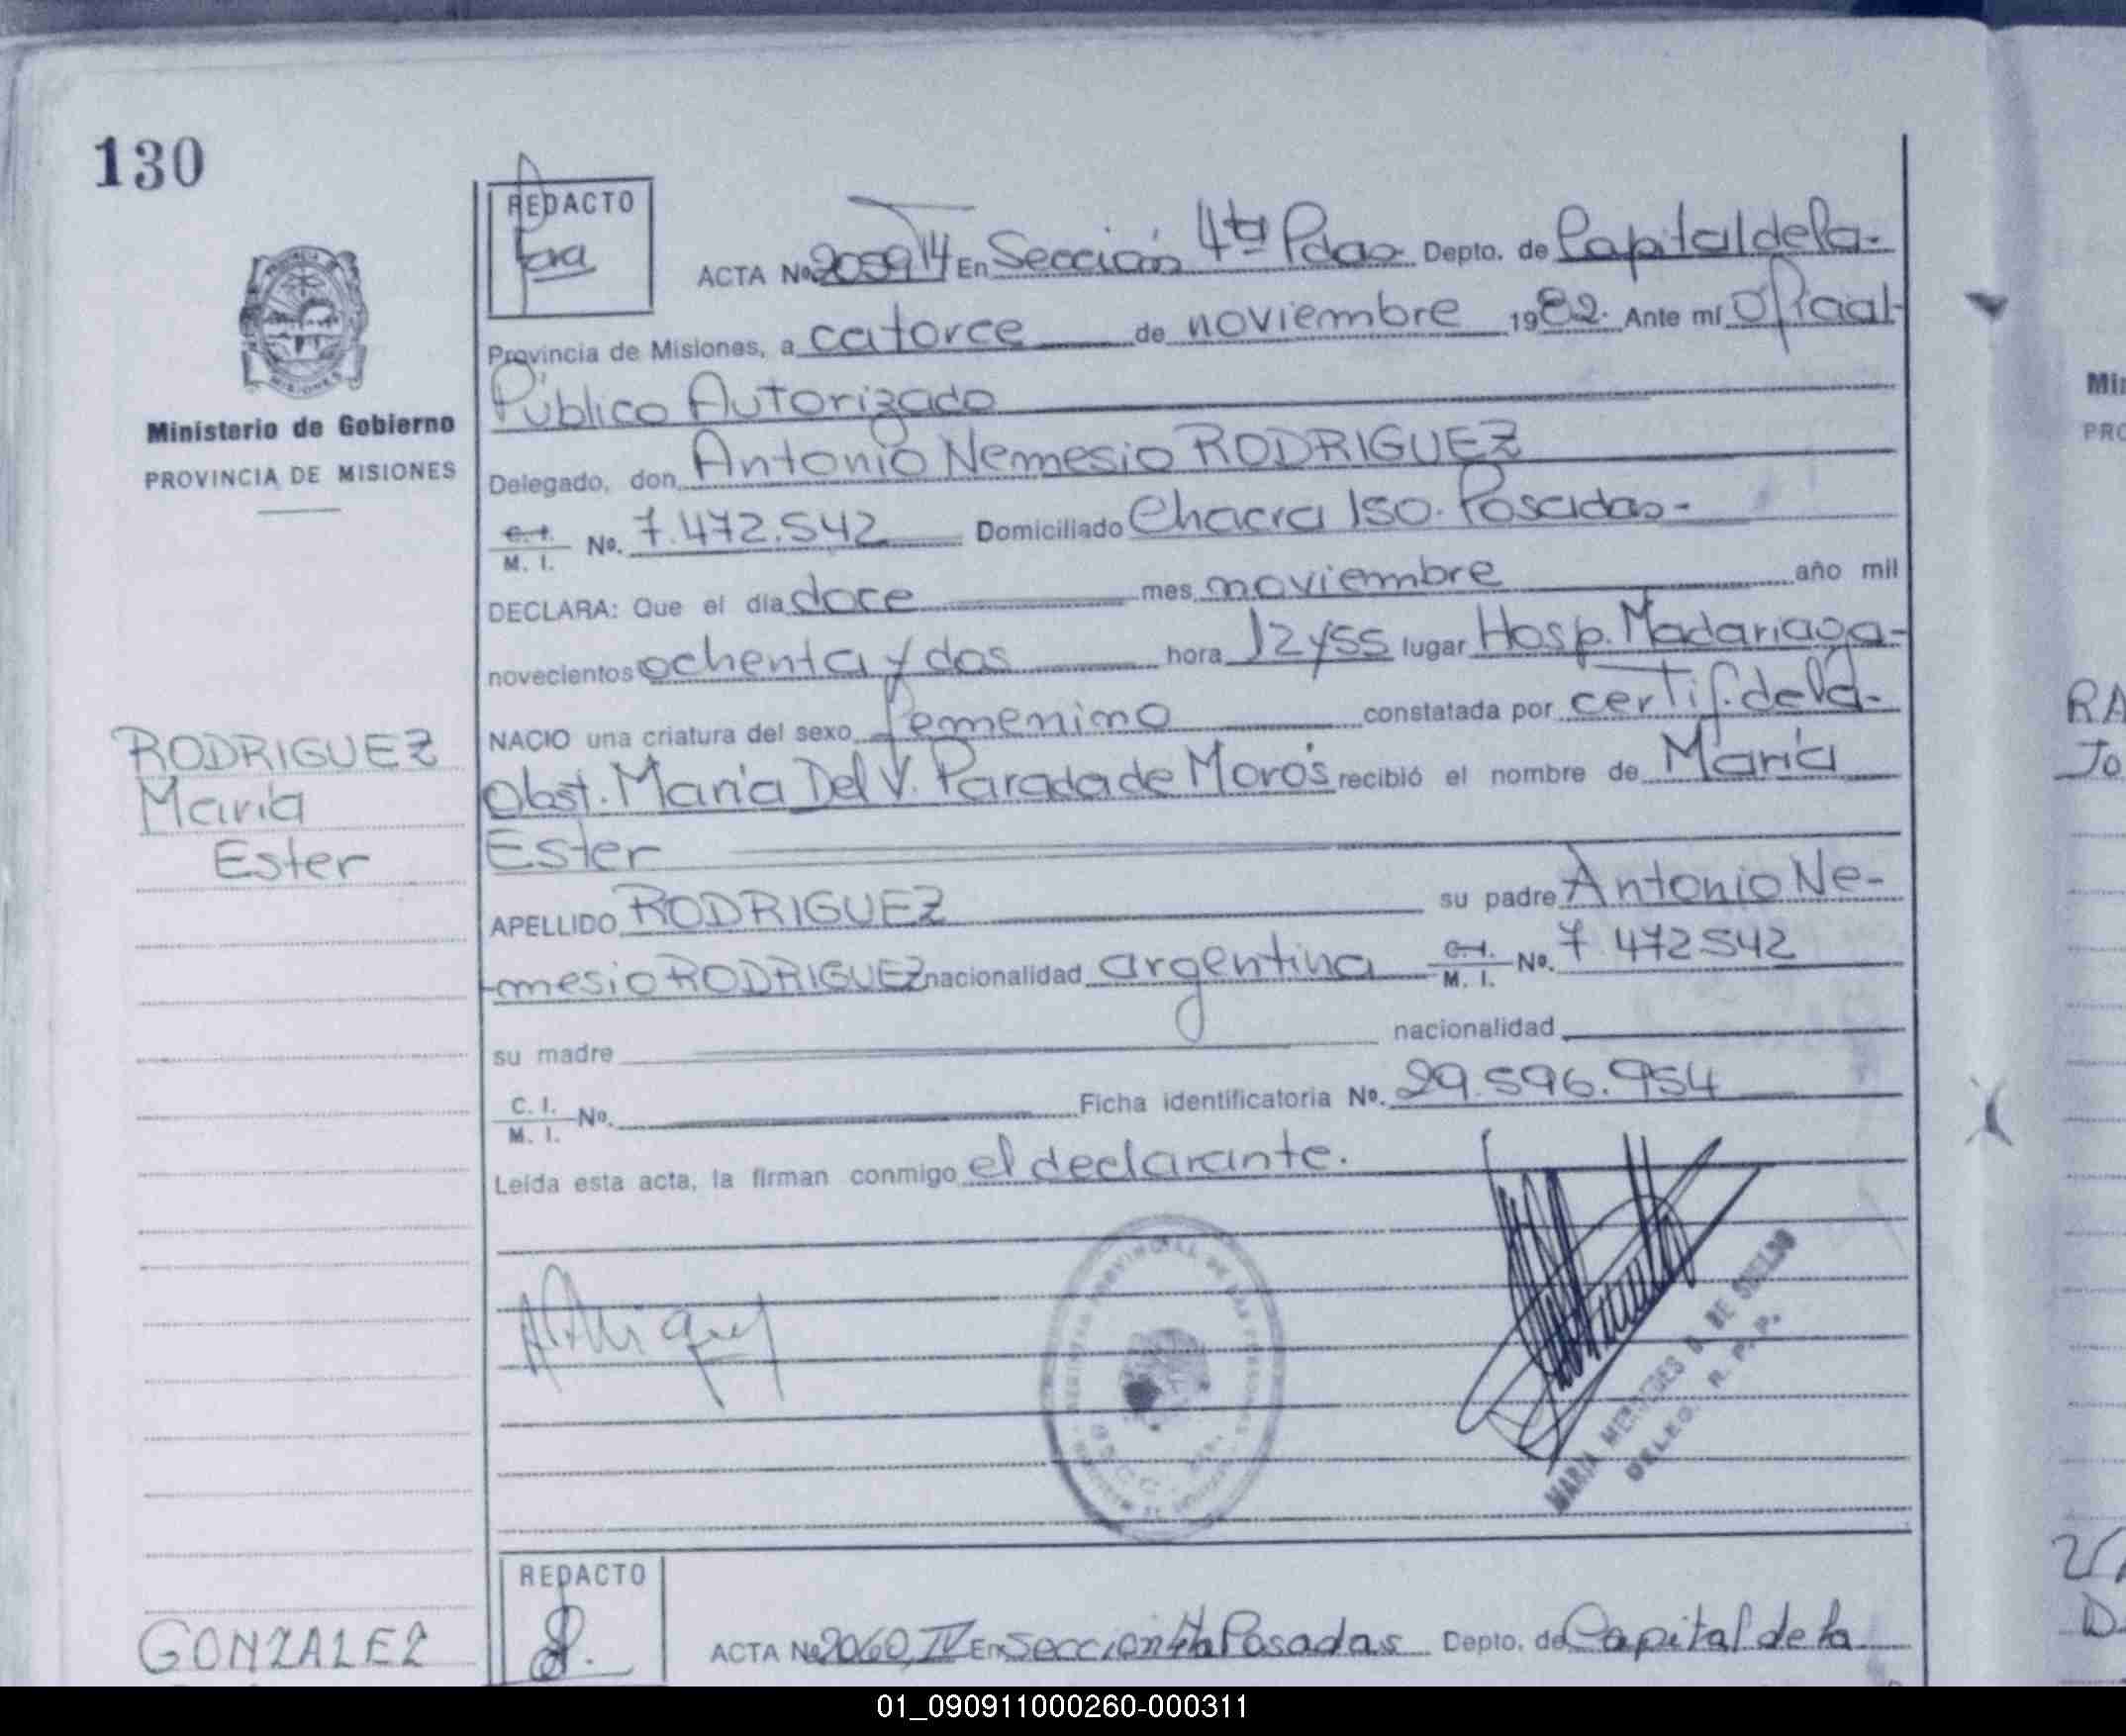 130
REDACTO
ACTA No. 2059 En Sección 4ta Pdas Depto. de Capital de la-
Provincia de Misiones, a catorce de noviembre 1982. Ante mí Oficial-
Público Autorizado
Ministerio de Gobierno
PROVINCIA DE MISIONES
Delegado, don, Antonio Nemesio RODRIGUEZ
C. I. M. I. No. 7.472.542 Domiciliado Chacra 150. Posadas-
DECLARA: Que el día doce mes noviembre año mil
novecientos ochenta y dos hora 12 y 55 lugar Hosp. Madariaga-
NACIO una criatura del sexo femenino constatada por certif. de la-
Obst. María Del V. Parada de Morós recibió el nombre de María
Ester
RODRIGUEZ
María
Ester
APELLIDO RODRIGUEZ su padre Antonio Ne-
-mesio RODRIGUEZ nacionalidad argentina C. I. M. I. No. 7 472542
su madre nacionalidad
C. I. M. I. No. Ficha identificatoria No. 29.596.954
Leída esta acta, la firman conmigo el declarante.
REGISTRO PROVINCIAL DE LAS PERSONAS
MARIA MERCEDES DE
DELEG. R. P. P.
REDACTO
GONZALEZ
ACTA No. 2060, IV En Sección 4ta Posadas Depto. de Capital de la
Mi
PRO
RA
Jo
D
01_090911000260-000311